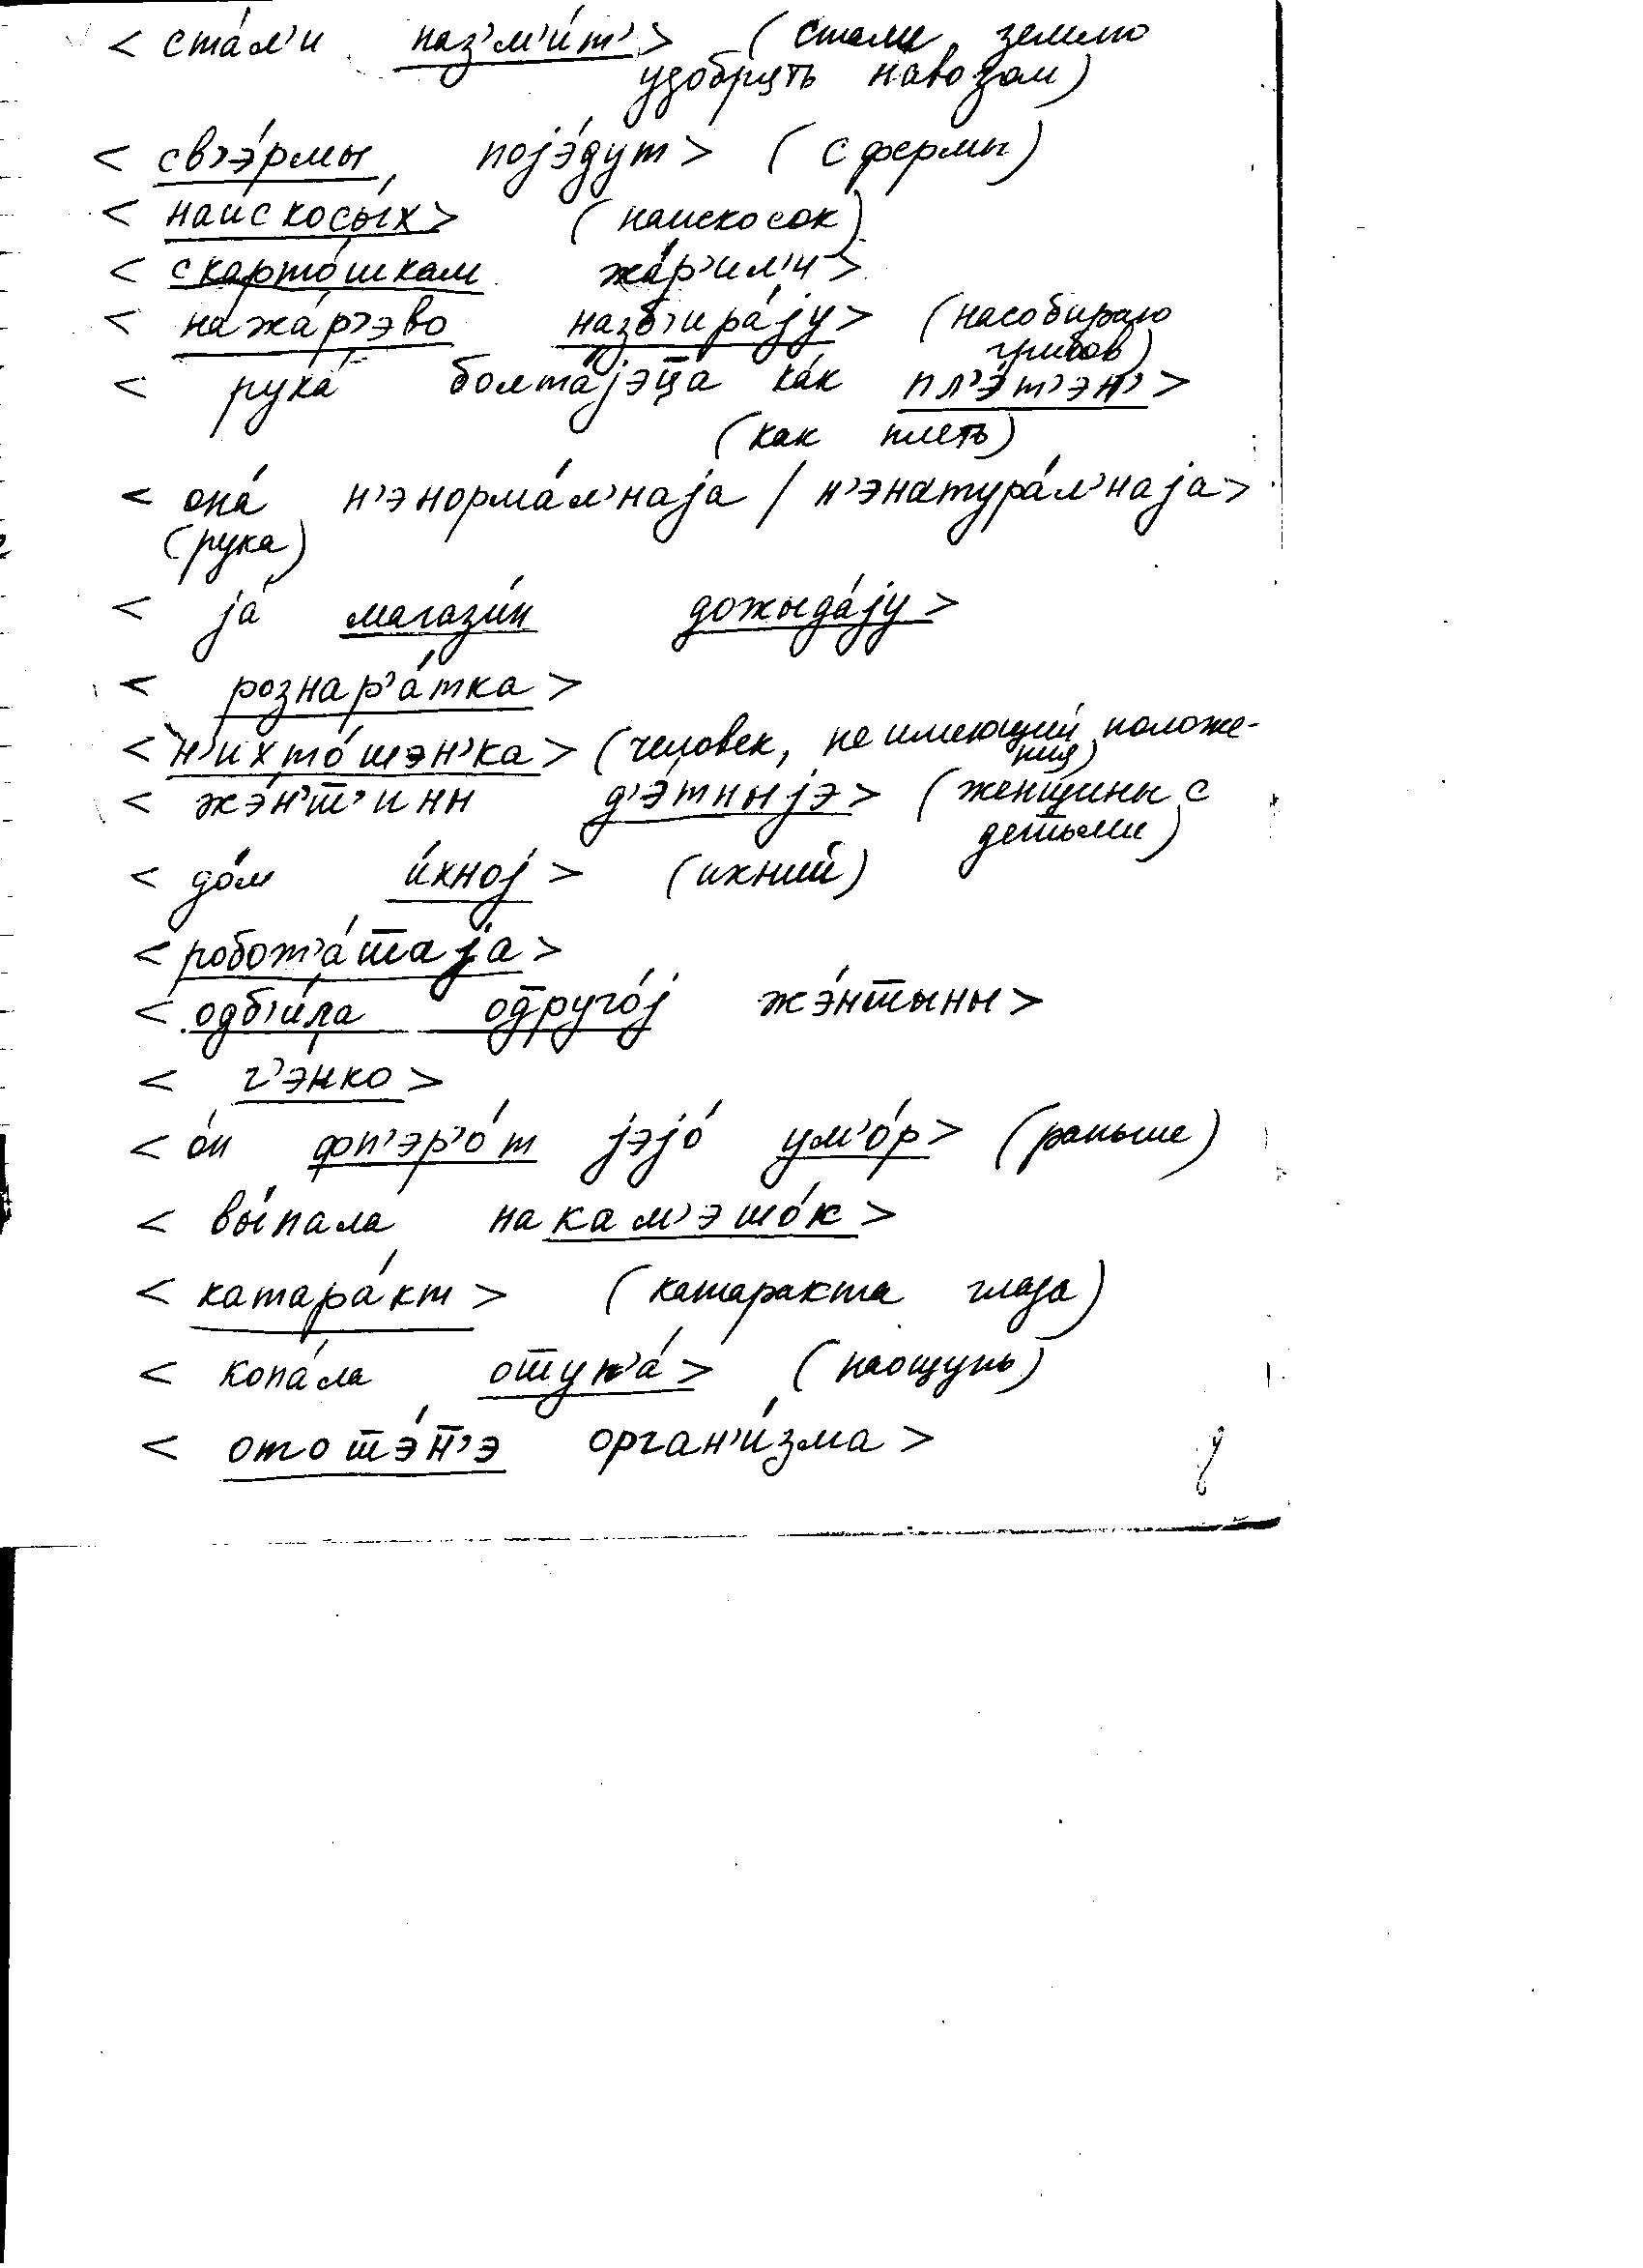 < ста́л'и наз'м'и́т'> (стали землю
удобрять навозом)
< св'э́рмы појэ́дут> (с фермы)
< наискосы́х> (наискосок)
< скарто́шкам жа́р'ил'и>
< нажа́р'эво назб'ира́јy> (насобираю
грибов)
< рука́ болта́јэц̅а ка́к пл'э́т'эн'>
(как плеть)
< она́ н'энорма́л'наја / н'энатура́л'наја>
(рука)
< ја́ магази́н дожыда́јy>
< рознар'а́тка>
< н'ихто́шэн'ка> (человек, не имеющий положе-
ния)
< жэ́н'ш̅'ины д'э́тныјэ> (женщины с
детьми)
< до́м и́хној> (ихний)
< робот'а́ш̅аја>
< одб'и́ла од̅руго́ј жэ́нш̅ыны>
< г'э́нко>
< о́н фп'эр'о́т јэјо́ ум'о́р> (раньше)
< вы́пала накам'эшо́к>
< катара́кт> (катаракта глаза)
< копа́ла ош̅уп'а́> (наощупь)
< отош̅э́н̅'э орган'и́зма>